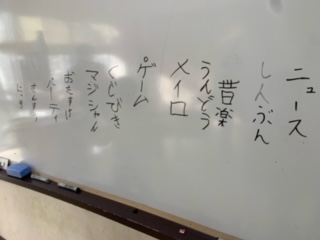 ニュース
しんぶん
音楽
うんどう
メイロ
ゲーム
くじびき
マジシャン
おたすけ
パーティ